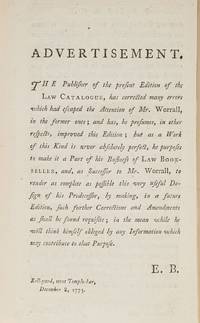 ADVERTISEMENT.
THE Publisher of the present Edition of the
LAW CATALOGUE, has corrected many errors
which had escaped the Attention of Mr. Worrall,
in the former ones; and has, he presumes, in other
respects, improved this Edition; but as a Work
of this Kind is never absolutely perfect, he purposes
to make it a Part of his Business of LAW BOOK-
SELLER, and, as Successor to Mr. Worrall, to
render as complete as possible this very useful De-
sign of his Predecessor, by making, in a future
Edition, such further Corrections and Amendments
as shall be found requisite; in the mean while he
will think himself obliged by any Information which
may contribute to that Purpose.
E. B.
Bell-yard, near Temple-bar,
December 8, 1775.